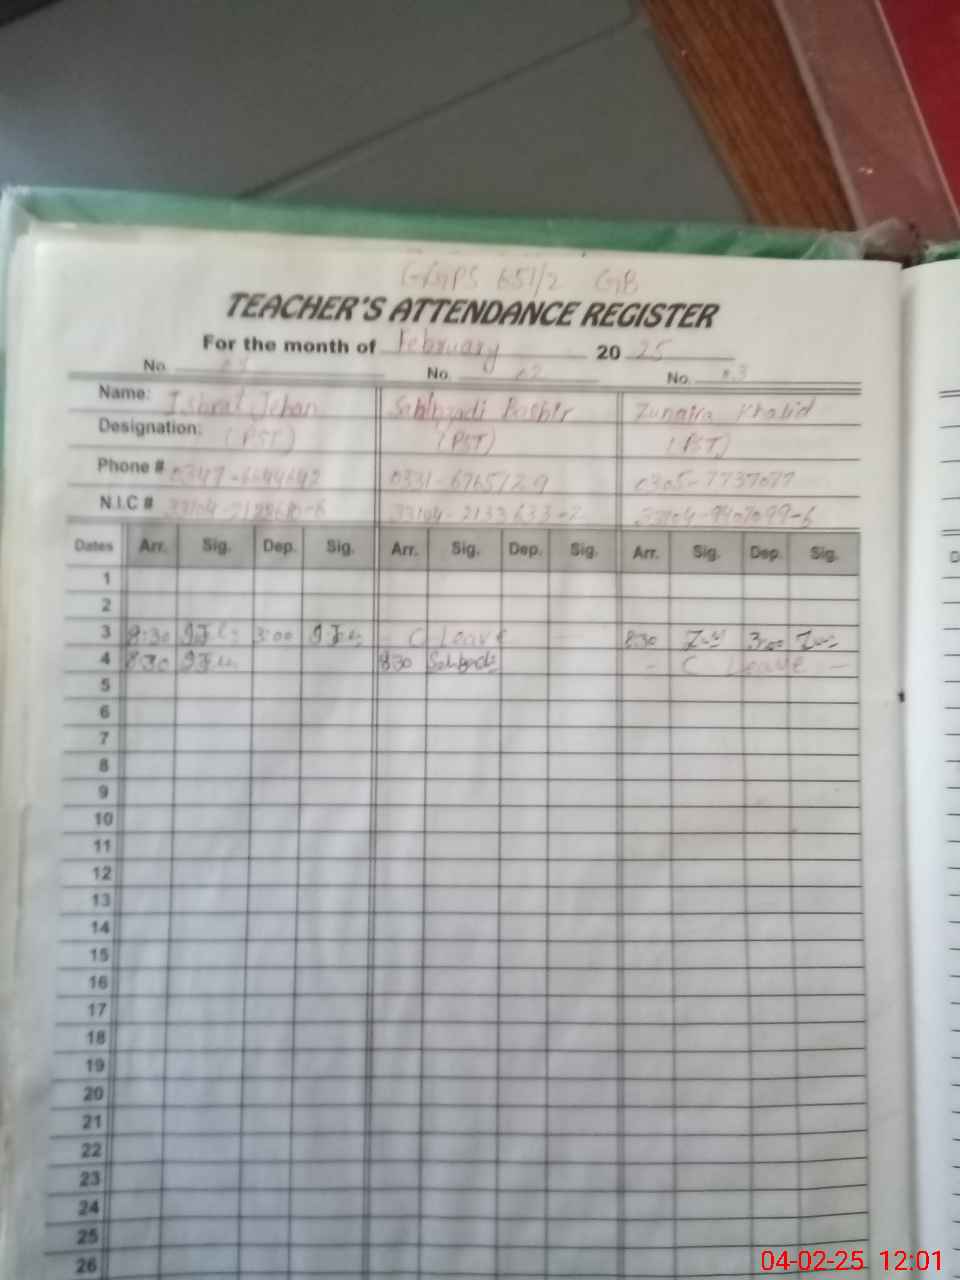 GGPS 651/2 GB
TEACHER'S ATTENDANCE REGISTER
For the month of February 20 25
No. No. 02 No. 03
Name: Ishrat Jehan Zunaira Khalid
Designation: (PST) (PST) (PST)
Phone # 0331-6765129 0305-7737077
N.I.C #
Dates Arr. Sig. Dep. Sig. Arr. Sig. Dep. Sig. Arr. Sig. Dep. Sig.
1
2
3 8:30 3:00 - C Leave - 8:30 3:00
4 8:30 8:30 - C Leave -
5
6
7
8
9
10
11
12
13
14
15
16
17
18
19
20
21
22
23
24
25
26
04-02-25 12:01